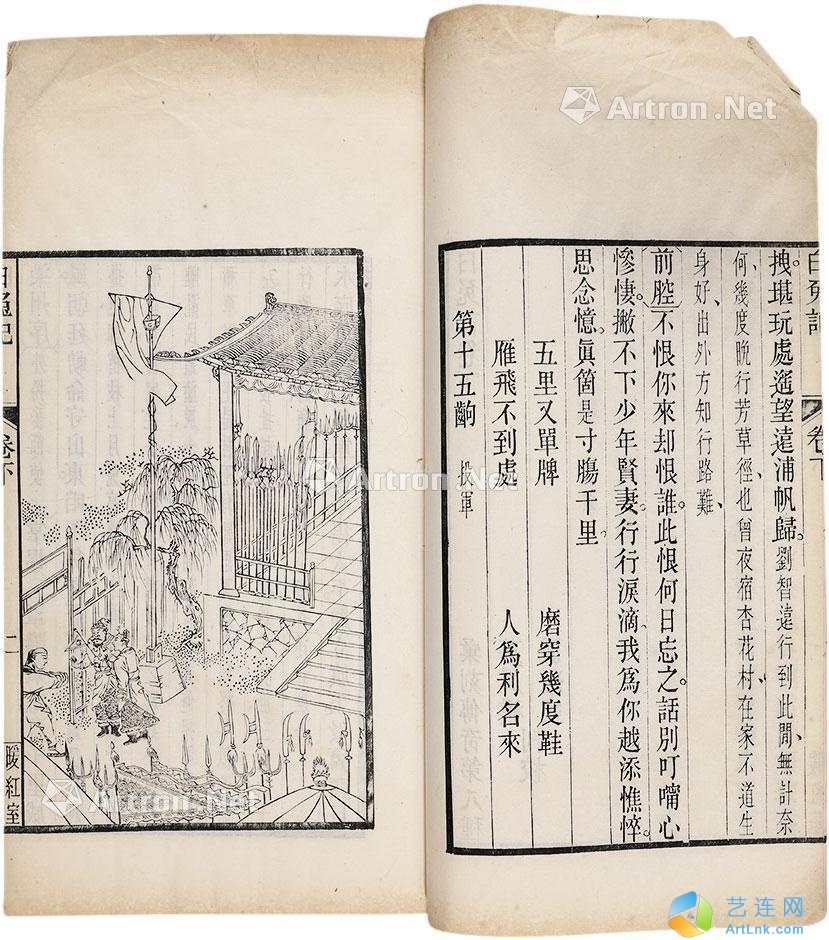 拽堪玩處遙望遠浦帆歸劉智遠行到此閒無計奈
何幾度晚行芳草徑也曾夜宿杏花村在家不道生
身好出外方知行路難
前腔不恨你來却恨誰此恨何日忘之話別叮嚀心
慘悽撇不下少年賢妻行行淚滴我爲你越添憔悴
思念憶眞箇是寸腸千里
五里又單牌 磨穿幾度鞋
雁飛不到處 人爲利名來
第十五齣 投軍
卷下
卷下
二
暖紅室
Artron.Net
Artron.Net
Artron.Net
艺连网
ArtLnk.com